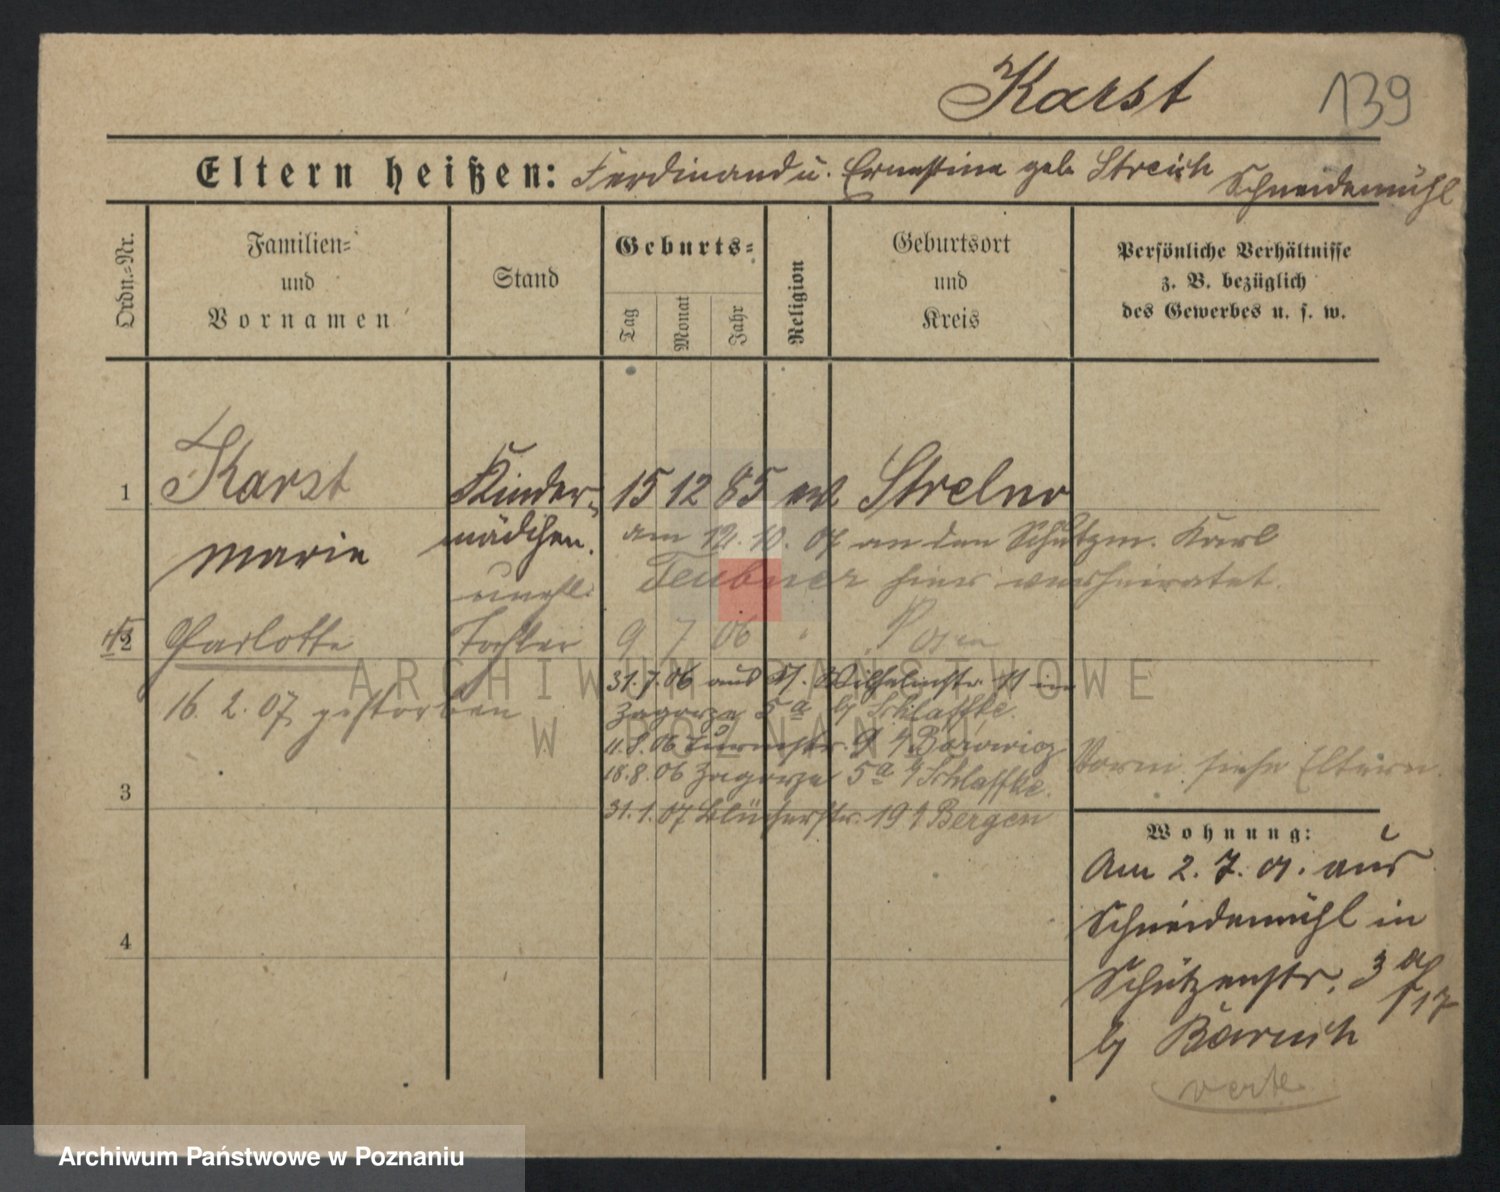 Karst 139
Eltern heißen: Ferdinand u. Ernestine geb. Streich Schneidemühl
Ordn.=Nr.
Familien=
und
Vornamen
Stand
Geburts=
Tag
Monat
Jahr
Religion
Geburtsort
und
Kreis
Persönliche Verhältnisse
z. B. bezüglich
des Gewerbes u. s. w.
1 Karst Kinder- 15 12 85 ev Strelno
Marie mädchen.
am 12. 10. 07 an den Schutzm. Karl
Teubner hier verheiratet.
unehl.
2 Charlotte Tochter 9 7 06 " Posen
16. 2. 07 gestorben
31.7.06 aus St. Wilhelmstr. 11 in
Zagorze 5a b/ Schlaffke.
11.8.06 Turmstr. 9 b/
18.8.06 Zagorze 5a b/ Schlaffke.
31.1.07 Blücherstr. 19 b/ Bergen
Vorm. siehe Eltern.
3
4
Wohnung:
Am 2. 7. 01. aus
Schneidemühl in
Schützenstr. 3a
b/ Baruch
verte
ARCHIWUM PAŃSTWOWE
W POZNANIU
Archiwum Państwowe w Poznaniu